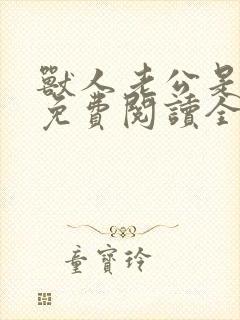 獸人老公是
免費閱讀全
童寶玲